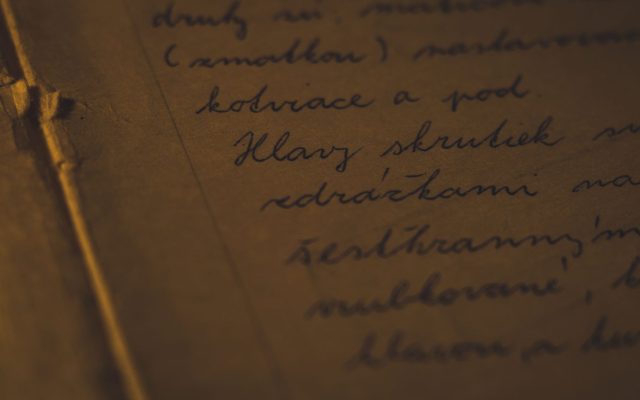 druhy sú, maticové
(zmatkou) nastavovacie
kotviace a pod.
Hlavy skrutiek sú
zdrážkami na
šesťhranným
vrubkované,
hlavou, a